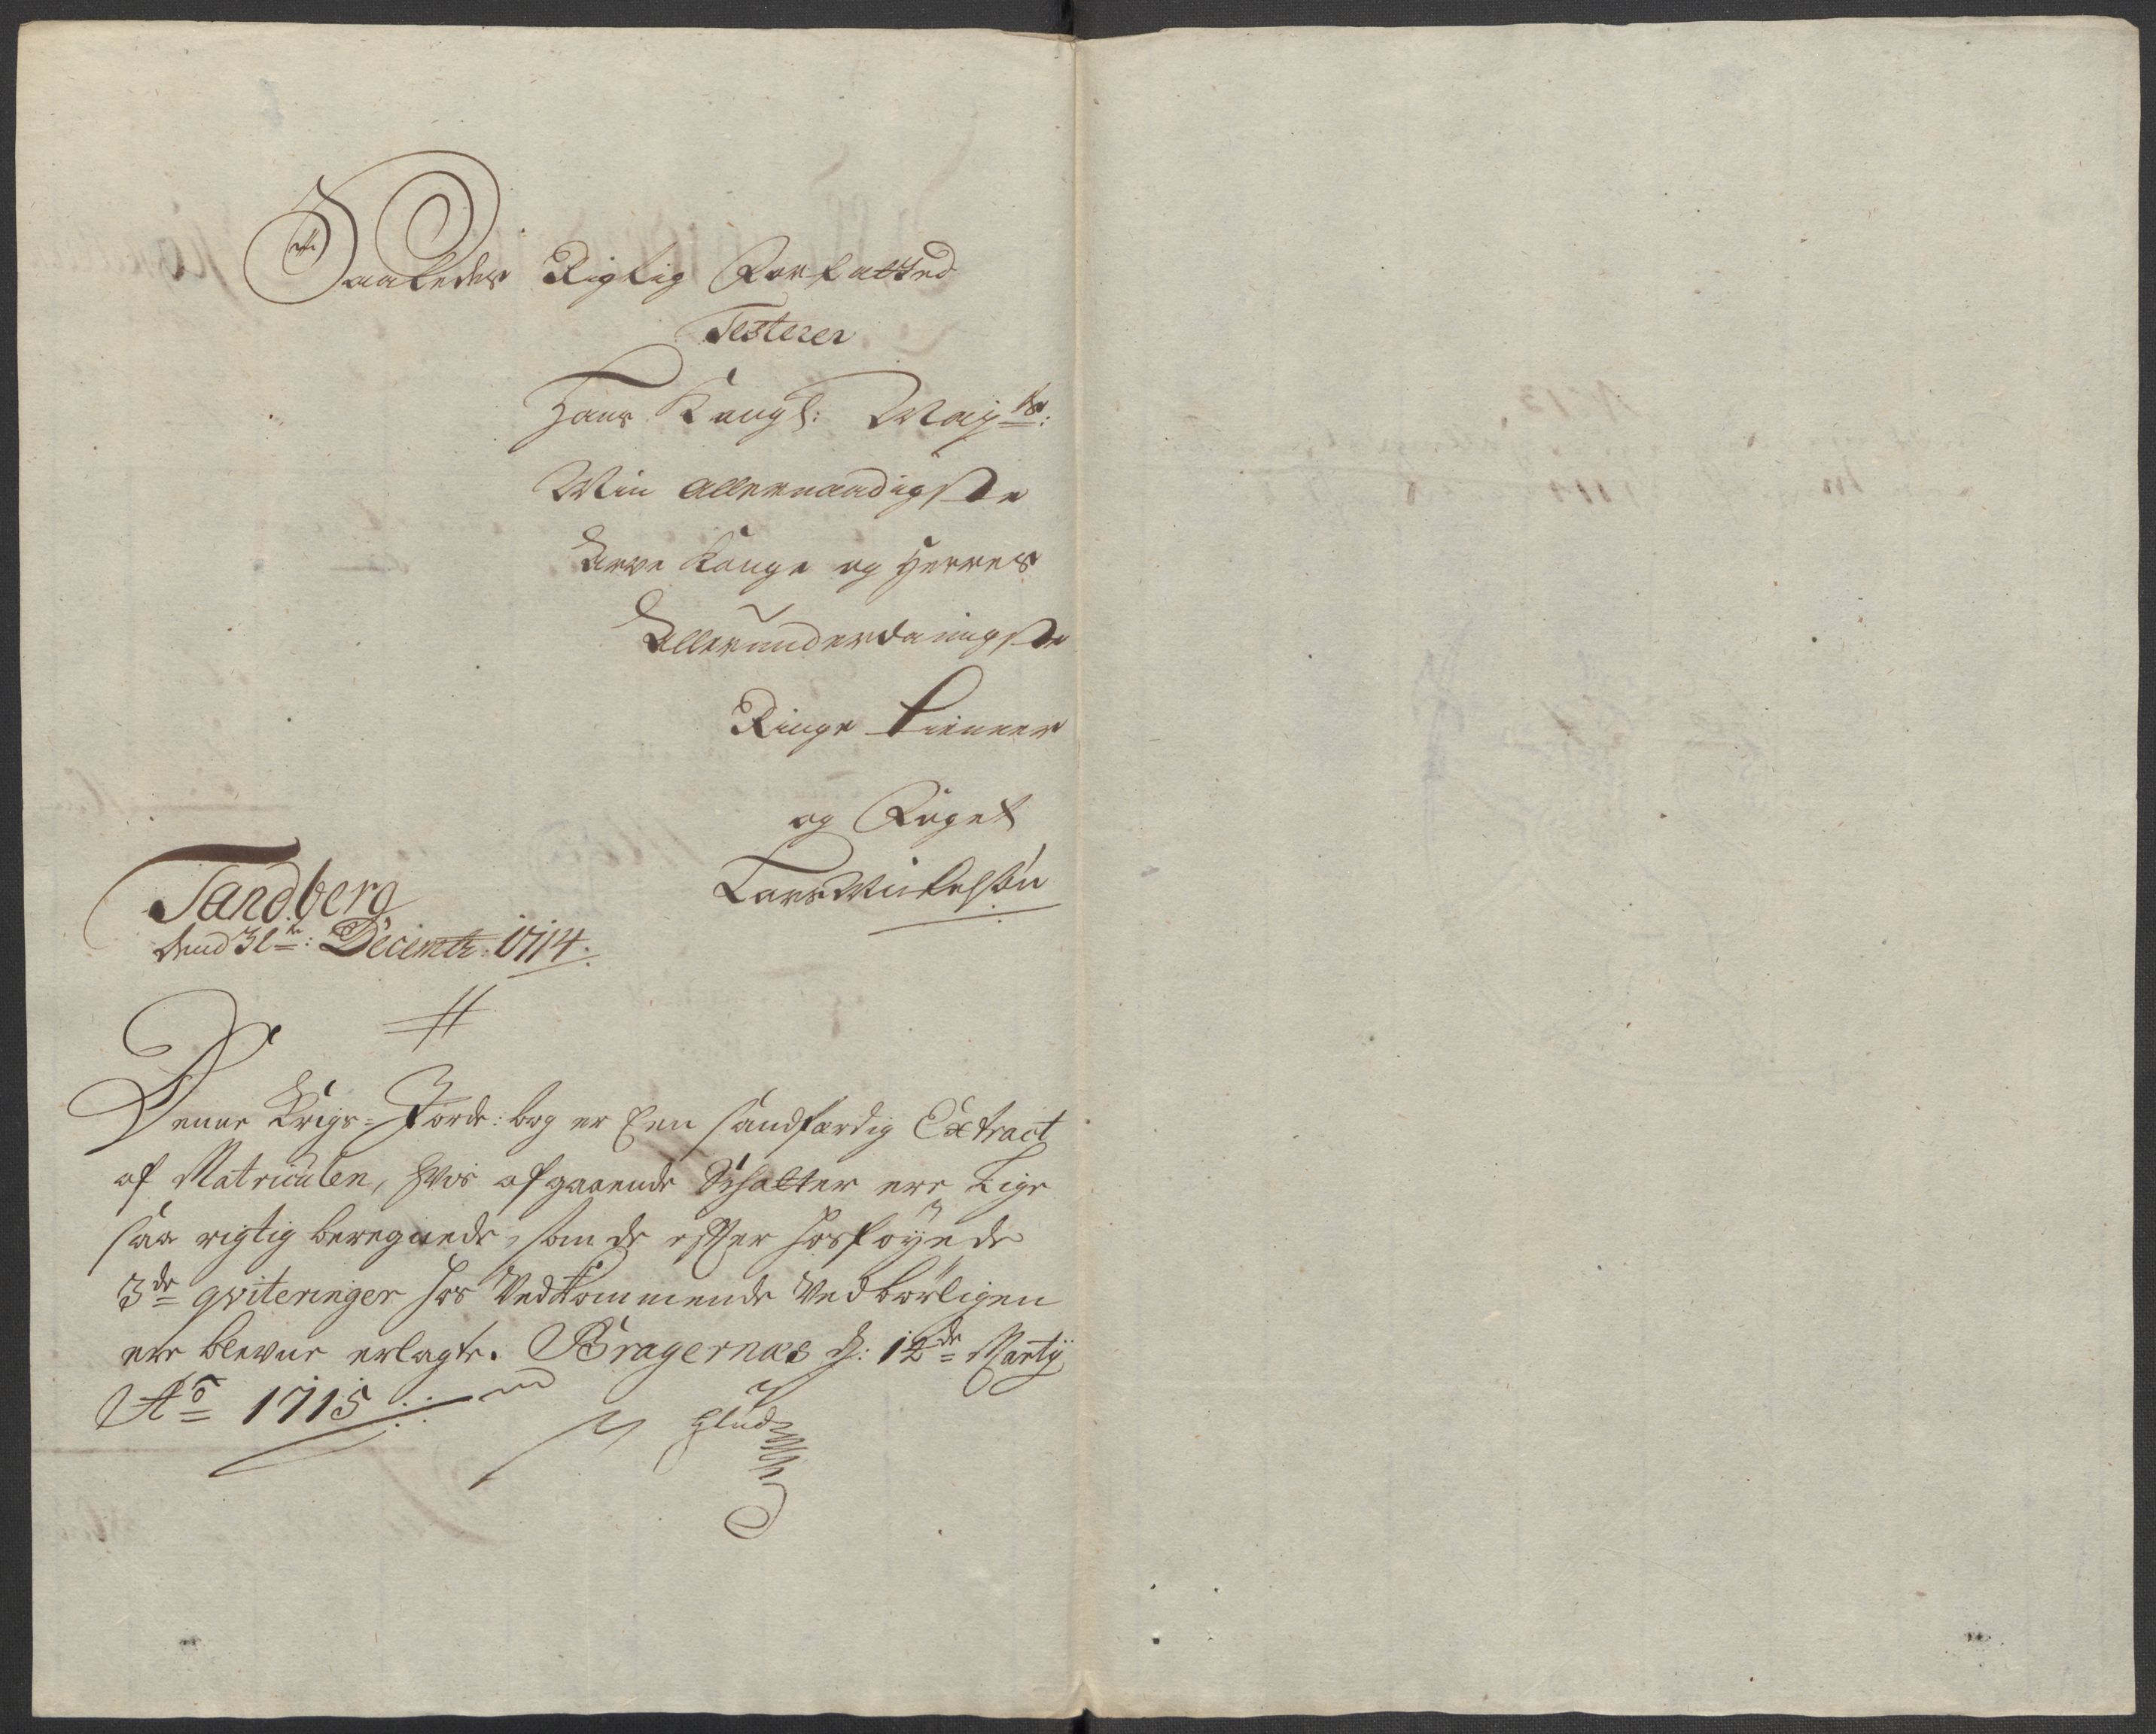 Saaledes Rigtig Forfatted
Testerer
Hans Kongl: Mayts:
Min allernaadigste
Arve Konge og Herres
Allerunderdanigste
Ringe tienner
og Foget
Lars Mickelsøn
Tandberg
dend 31te: Decembr: 1714.
Denne Krigs-Jorde: bog er Een sandfærdig Extract
af Matriculen, hvis afgaaende Schatter ere Lige
saa rigtig beregnede, som de efter hosføyede
3de qviteringer hos Vedkommende Vedbörligen
ere blevne erlagte. Bragernæs d: 12de Marty
Ao 1715
Glud